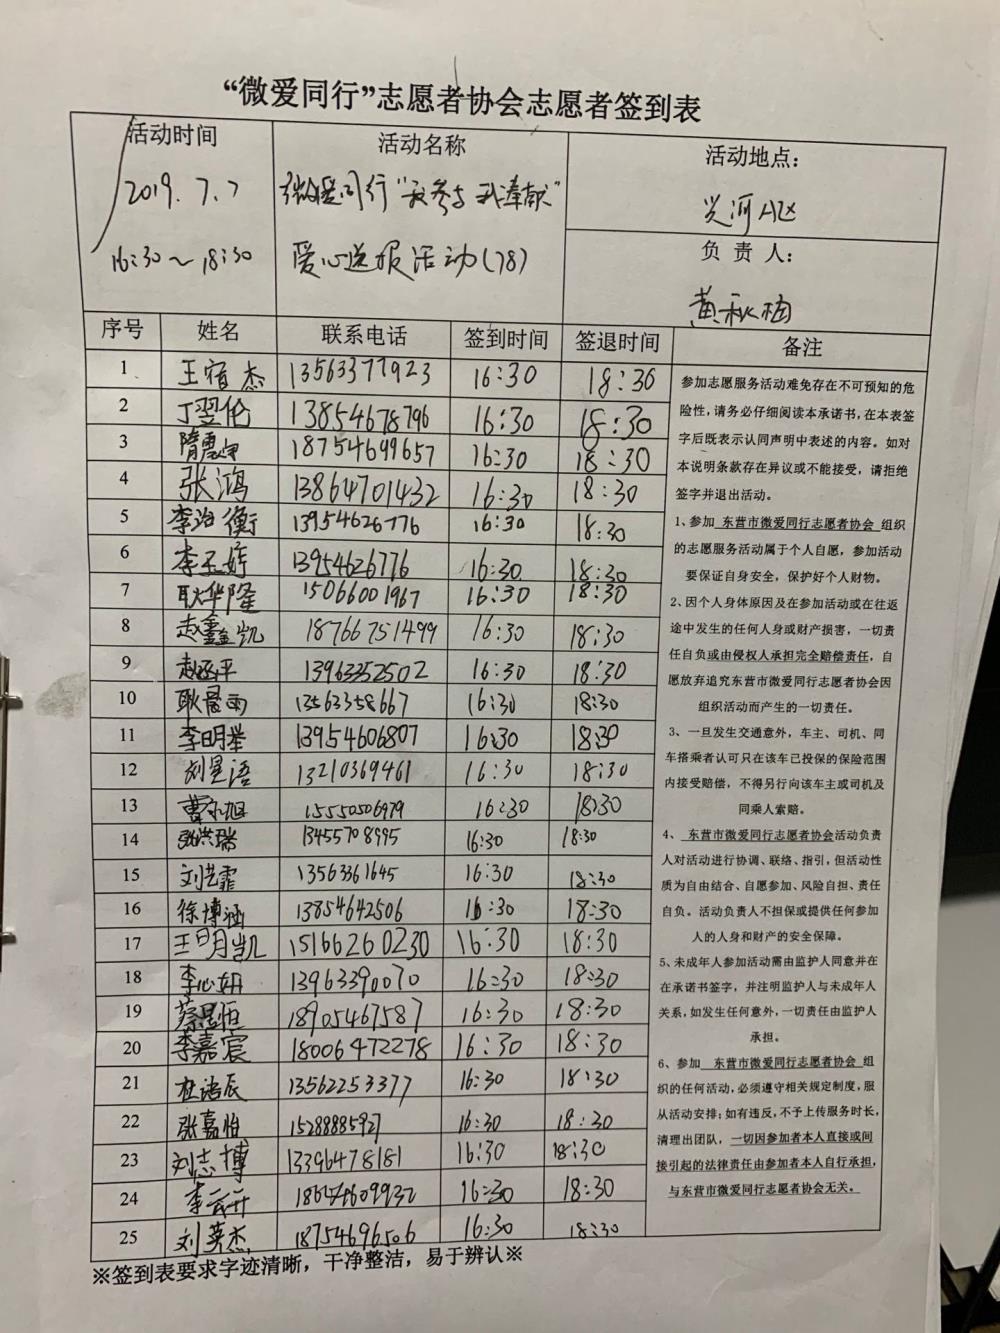 “微爱同行”志愿者协会志愿者签到表
活动时间
2019.7.7
16:30～18:30
活动名称
微爱同行“我参与 我奉献”
爱心送报活动(78)
活动地点：
兴河A区
负 责 人：
黄秋梅
序号 姓名 联系电话 签到时间 签退时间 备注
1 王宿杰 13563377923 16:30 18:30
2 丁翌伦 13854678796 16:30 18:30
3 隋震 18754699657 16:30 18:30
4 张鸿 13864701432 16:30 18:30
5 李治衡 13954626776 16:30 18:30
6 李玉婷 13954626776 16:30 18:30
7 耿华隆 15066001967 16:30 18:30
8 赵鑫凯 18766751499 16:30 18:30
9 赵丞平 13963352502 16:30 18:30
10 耿雨 13563358667 16:30 18:30
11 李明举 13954606807 16:30 18:30
12 刘星语 13210369461 16:30 18:30
13 曹旭 15550506979 16:30 18:30
14 张洪瑞 13455708995 16:30 18:30
15 刘艺霏 13563361645 16:30 18:30
16 徐博涵 13854642506 16:30 18:30
17 王明凯 15166260230 16:30 18:30
18 李心妍 13963390070 16:30 18:30
19 蔡昱恒 18905467587 16:30 18:30
20 李嘉宸 18006472278 16:30 18:30
21 杜浩辰 13562253377 16:30 18:30
22 张嘉怡 15288885927 16:30 18:30
23 刘志博 13396478181 16:30 18:30
24 李云开 16:30 18:30
25 刘英杰 18754696506 16:30 18:30
参加志愿服务活动难免存在不可预知的危
险性，请务必仔细阅读本承诺书，在本表签
字后既表示认同声明中表述的内容。如对
本说明条款存在异议或不能接受，请拒绝
签字并退出活动。
1、参加 东营市微爱同行志愿者协会 组织
的志愿服务活动属于个人自愿，参加活动
要保证自身安全，保护好个人财物。
2、因个人身体原因及在参加活动或在往返
途中发生的任何人身或财产损害，一切责
任自负或由侵权人承担完全赔偿责任，自
愿放弃追究东营市微爱同行志愿者协会因
组织活动而产生的一切责任。
3、一旦发生交通意外，车主、司机、同
车搭乘者认可只在该车已投保的保险范围
内接受赔偿，不得另行向该车主或司机及
同乘人索赔。
4、 东营市微爱同行志愿者协会活动负责
人对活动进行协调、联络、指引，但活动性
质为自由结合、自愿参加、风险自担、责任
自负。活动负责人不担保或提供任何参加
人的人身和财产的安全保障。
5、未成年人参加活动需由监护人同意并在
在承诺书签字，并注明监护人与未成年人
关系，如发生任何意外，一切责任由监护人
承担。
6、参加 东营市微爱同行志愿者协会 组
织的任何活动，必须遵守相关规定制度，服
从活动安排；如有违反，不予上传服务时长，
清理出团队，一切因参加者本人直接或间
接引起的法律责任由参加者本人自行承担，
与东营市微爱同行志愿者协会无关。
※签到表要求字迹清晰，干净整洁，易于辨认※